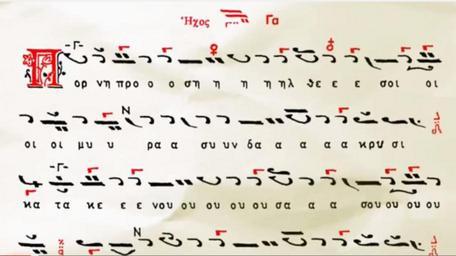 Ἦχος Γα
Πορ νη προ ο ο ση η η ηλ θε ε ε σοι οι
οι οι μυ υ ρα α συ υν δα α α α κρυ σι
κα τα κε ε ε νου ου ου ου ου σα α α σου ου ου ου